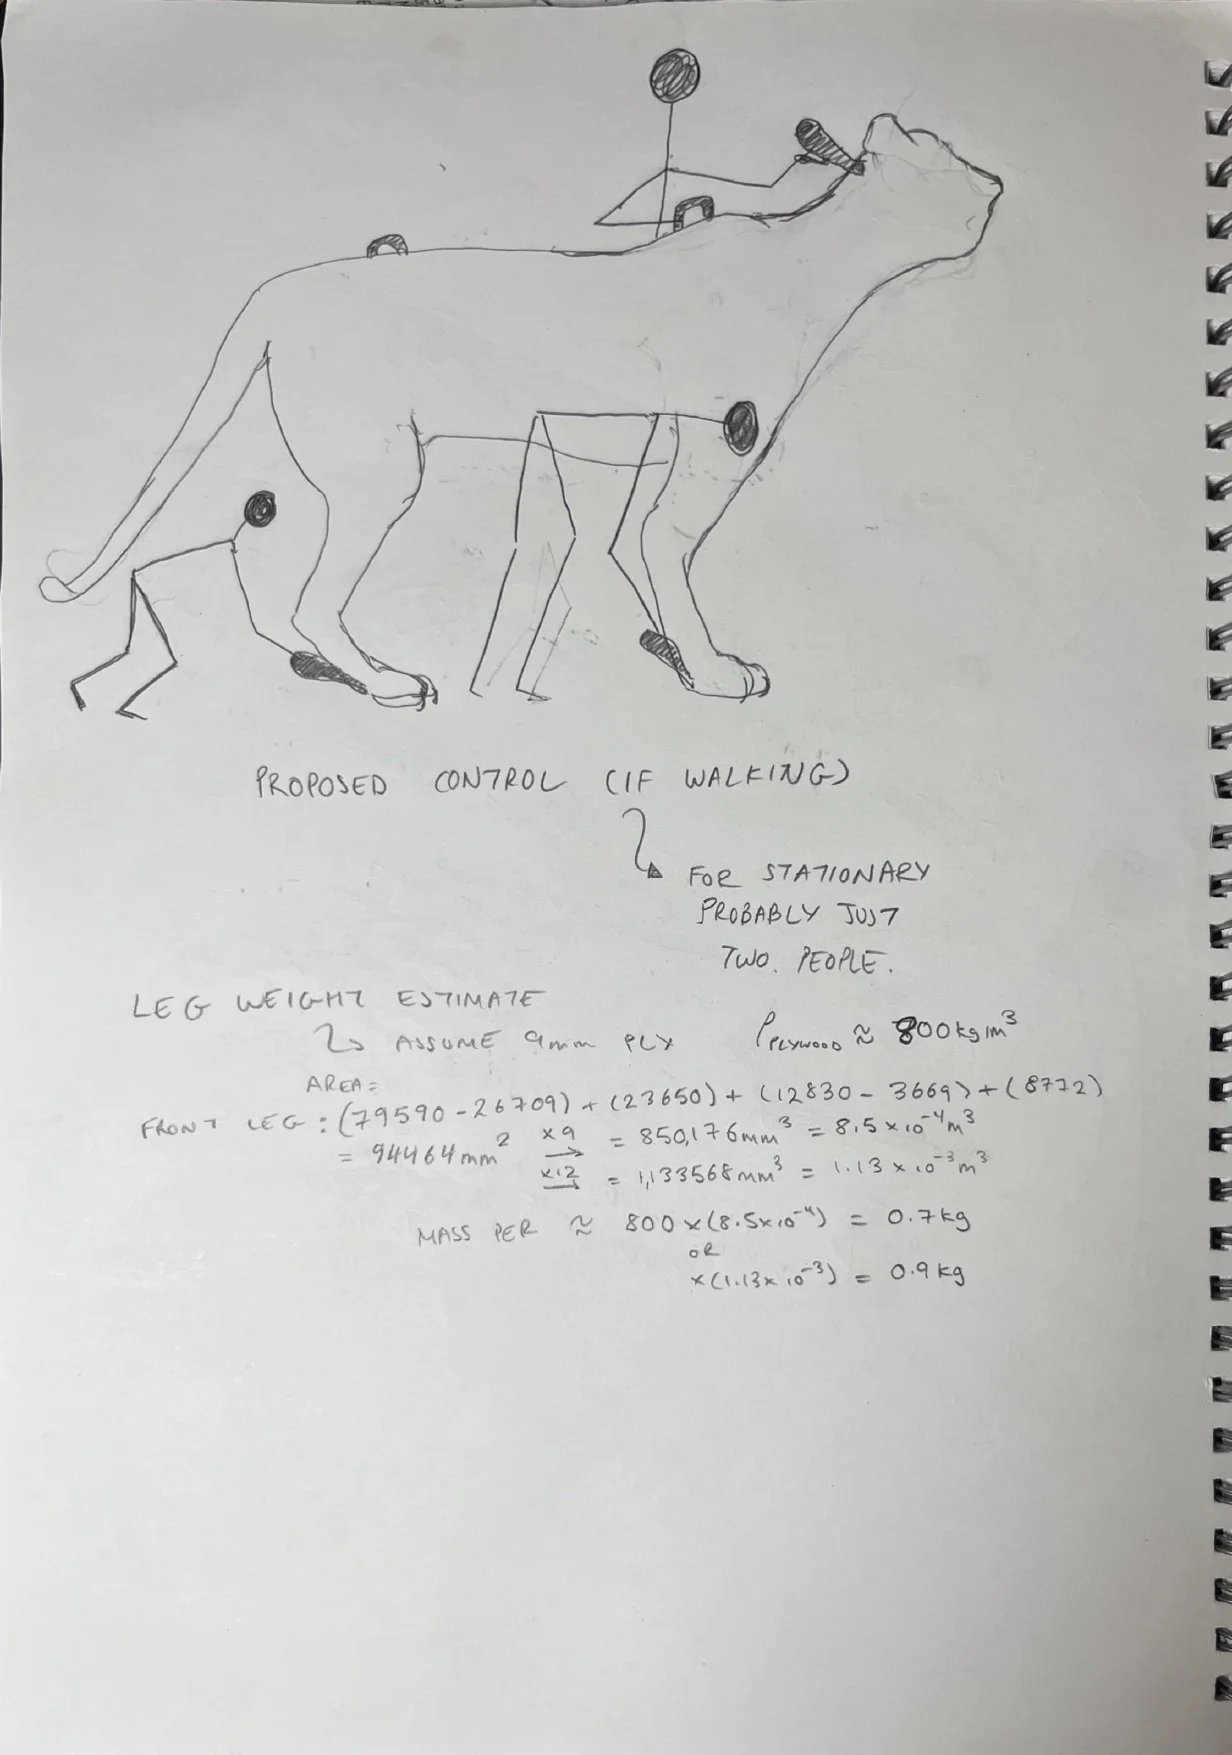 PROPOSED CONTROL (IF WALKING)
FOR STATIONARY
PROBABLY JUST
TWO. PEOPLE.
LEG WEIGHT ESTIMATE
ASSUME 9mm PLY ρPLYWOOD ≈ 800kg/m³
AREA=
FRONT LEG : (79590 - 26709) + (23650) + (12830 - 3669) + (8772)
= 94464mm² x9 = 850,176mm³ = 8.5 x 10⁻⁴m³
x12 = 1,133568mm³ = 1.13 x 10⁻³m³
MASS PER ≈ 800 x (8.5x10⁻⁴) = 0.7kg
OR
x(1.13x10⁻³) = 0.9kg